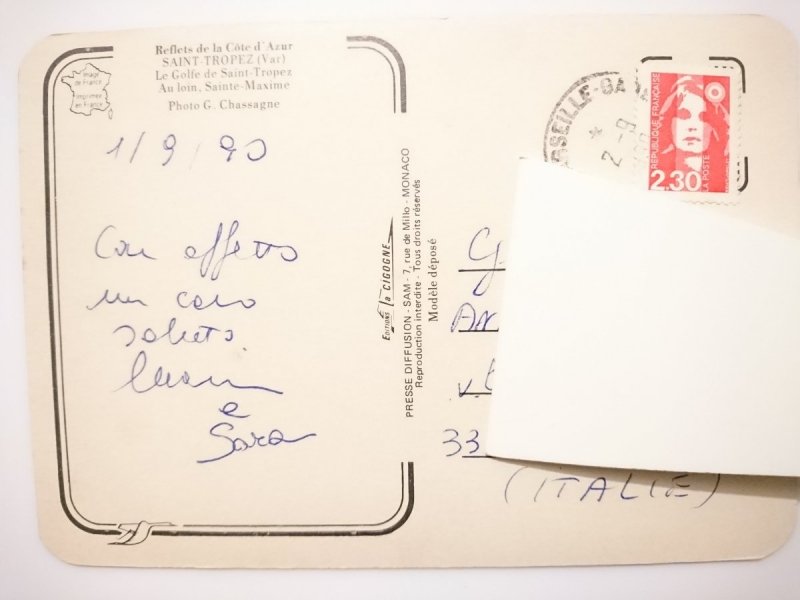 Reflets de la Côte d'Azur
SAINT-TROPEZ (Var)
Le Golfe de Saint-Tropez
Au loin, Sainte-Maxime
Photo G. Chassagne
Image
de France
imprimée
en France
1/9/90
Con affetto
un caro
saluto.
e
Sara
EDITIONS la CIGOGNE
PRESSE DIFFUSION - SAM - 7, rue de Millo - MONACO
Reproduction interdite - Tous droits réservés
Modèle déposé
2 -9
RÉPUBLIQUE FRANÇAISE
2,30
LA POSTE
G
AN
v.
33
(ITALIE)